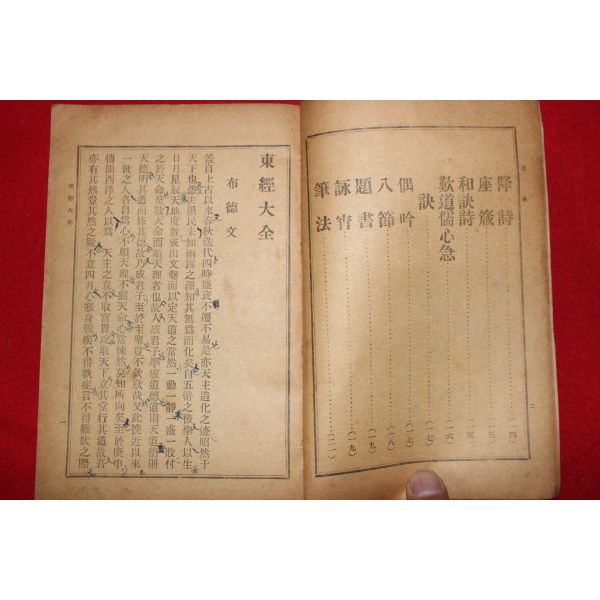 目次
降詩 (一四)
座箴 (一五)
和訣詩 (一五)
歎道儒心急 (一六)
訣 (一七)
偶吟 (一七)
八節 (一八)
題書 (一九)
詠宵 (一九)
筆法
東經大全
布德文
蓋自上古以來春秋迭代四時盛衰不遷不易是亦天主造化之迹昭然于
天下也愚夫愚民未知雨露之澤知其無爲而化矣自五帝之後聖人以生
日月星辰天地度數成出文卷而以定天道之常然一動一靜一盛一敗付
之於天命是敬天命而順天理者也故人成君子學成道德道則天道德則
天德明其道而修其德故乃成君子至於至聖豈不欽歎哉又此挽近以來
一世之人各自爲心不順天理不顧天命心常悚然莫知所向矣至於庚申
傳聞西洋之人以爲 天主之意不取富貴攻取天下立其堂行其道故吾
亦有其然豈其然之疑不意四月心寒身戰疾不得執症言不得難狀之際
東經大全
一